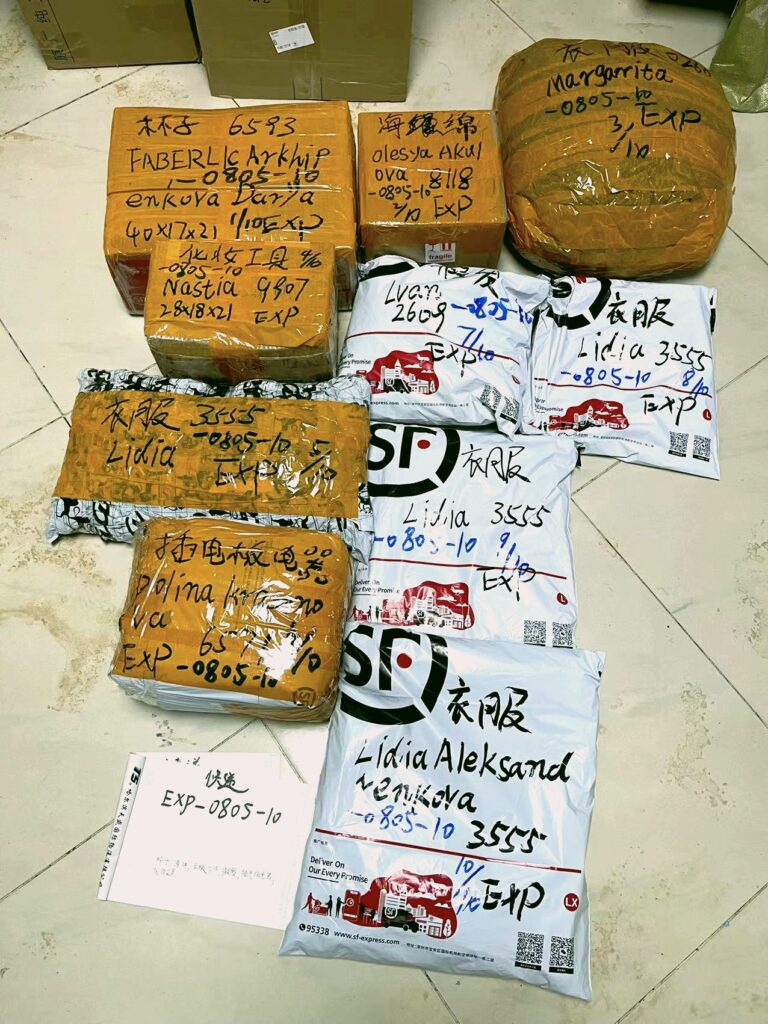 杯子 6593
FABERLIC Arkhip
-0805-10
enkova Darya
40x17x21 1/10 EXP
海绵
olesya Akul
ova 8118
-0805-10
2/10 EXP
fragile
衣服
Margarita
-0805-10
EXP
3/10
化妆工具 4/10
-0805-10
Nastia 9907
28x18x21 EXP
Lvan
2609 -0805-10
7/10
EXP
Our Every Promise
-express.com
衣服
Lidia 3555
-0805-10 8/10
EXP
L
衣服 3555
Lidia -0805-10 5/10
EXP
SF
衣服
Lidia 3555
-0805-10 9/10
EXP
Deliver On
Our Every Promise
L
插电板 电
va
EXP -0805-10
SF
衣服
Lidia Aleksand
renkova
-0805-10 3555
10/10 EXP
Deliver On
Our Every Promise
LX
95338 www.sf-express.com
快递
EXP-0805-10